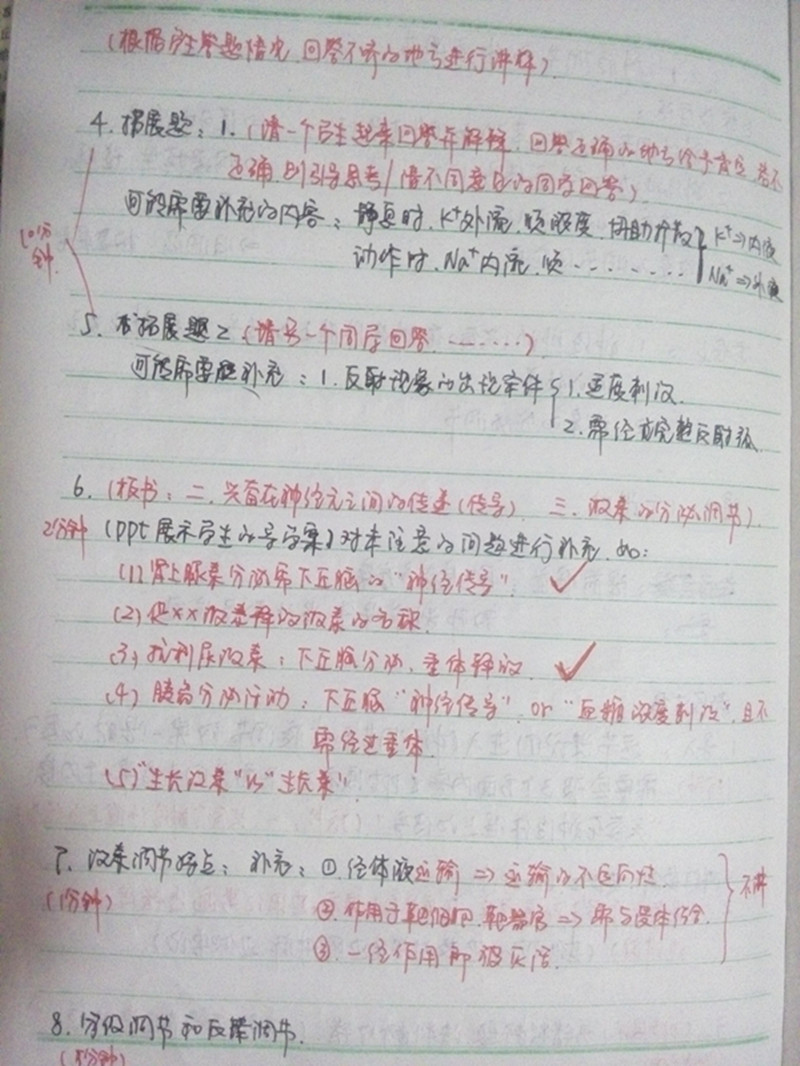 (根据学生答题情况,回答不好的地方进行讲解)
4. 拓展题:1.(请一个学生起来回答并解释,回答正确的地方给予肯定,若不
正确则引导思考/请不同意见的同学回答)
可能需要补充的内容:静息时,K⁺外流,顺浓度,协助扩散 K⁺⇒内液
动作时,Na⁺内流,顺........ Na⁺⇒外液
10分钟
5. 拓展题2(请另一个同学回答.......)
可能需要补充:1.反射现象的出现条件 1.适度刺激.
2.需经过完整反射弧
6.(板书:二.兴奋在神经元之间的传递(传导) 三.激素的分泌调节)
2分钟 (ppt展示学生的导学案)对未注意的问题进行补充.如:
(1)肾上腺素分泌需下丘脑的“神经传导” ✓
(2)促××激素释放激素的名称.
(3)抗利尿激素:下丘脑分泌,垂体释放. ✓
(4)胰岛分泌活动:下丘脑“神经传导”or“血糖浓度刺激”,且不
需经过垂体.
(5)“生长激素”vs“生长素”
7. 激素调节特点:补充:①经体液运输⇒运输的不定向性
(1分钟) ②作用于靶细胞、靶器官⇒需与受体结合 不讲
③一经作用即被灭活.
8. 分级调节和反馈调节.
分钟)